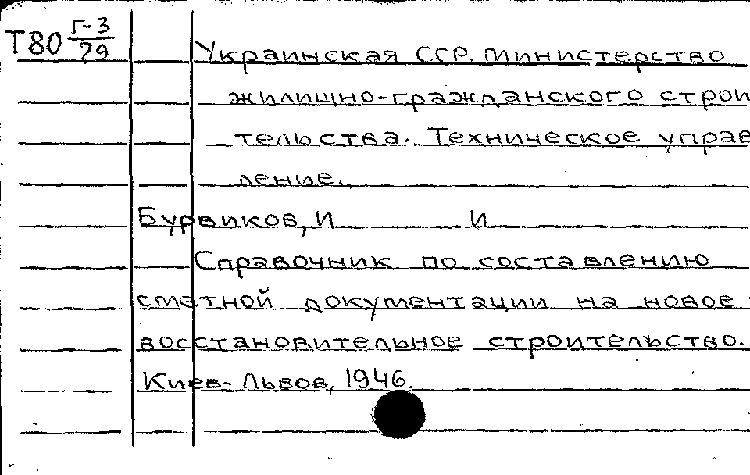 Т80 Г-3/79
Украинская ССР. Министерство
жилищно-гражданского строи
тельства. Техническое управ
ление.
Бурвиков, И И
Справочник по составлению
сметной документации на новое
восстановительное строительство.
Киев-Львов, 1946.